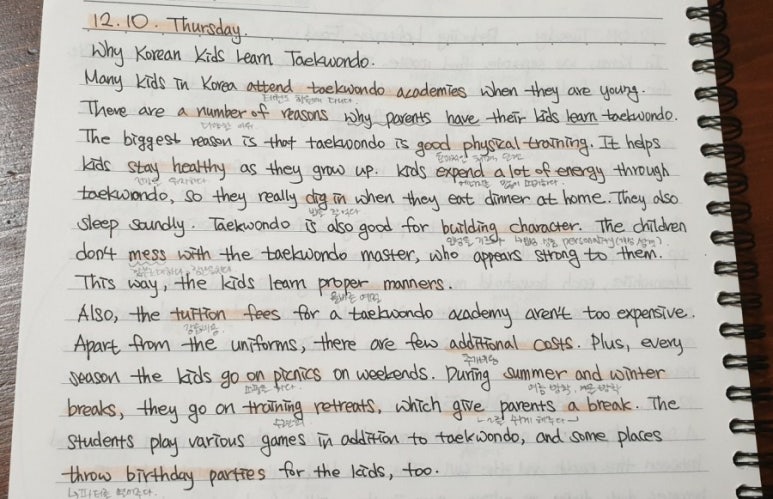 12.10. Thursday.
Why Korean Kids Learn Taekwondo.
Many kids in Korea attend taekwondo academies when they are young.
태권도 학원에 다니다.
There are a number of reasons why parents have their kids learn taekwondo.
다양한 이유
The biggest reason is that taekwondo is good physical training. It helps
kids stay healthy as they grow up. Kids expend a lot of energy through
건강을 유지하다 에너지를 많이 소비하다.
taekwondo, so they really dig in when they eat dinner at home. They also
sleep soundly. Taekwondo is also good for building character. The children
인성을 기르다 personality
don't mess with the taekwondo master, who appears strong to them.
This way, the kids learn proper manners.
올바른 예절
Also, the tuition fees for a taekwondo academy aren't too expensive.
Apart from the uniforms, there are few additional costs. Plus, every
추가비용
season the kids go on picnics on weekends. During summer and winter
소풍을 가다. 여름 방학, 겨울 방학
breaks, they go on training retreats, which give parents a break. The
수련회
students play various games in addition to taekwondo, and some places
throw birthday parties for the kids, too.